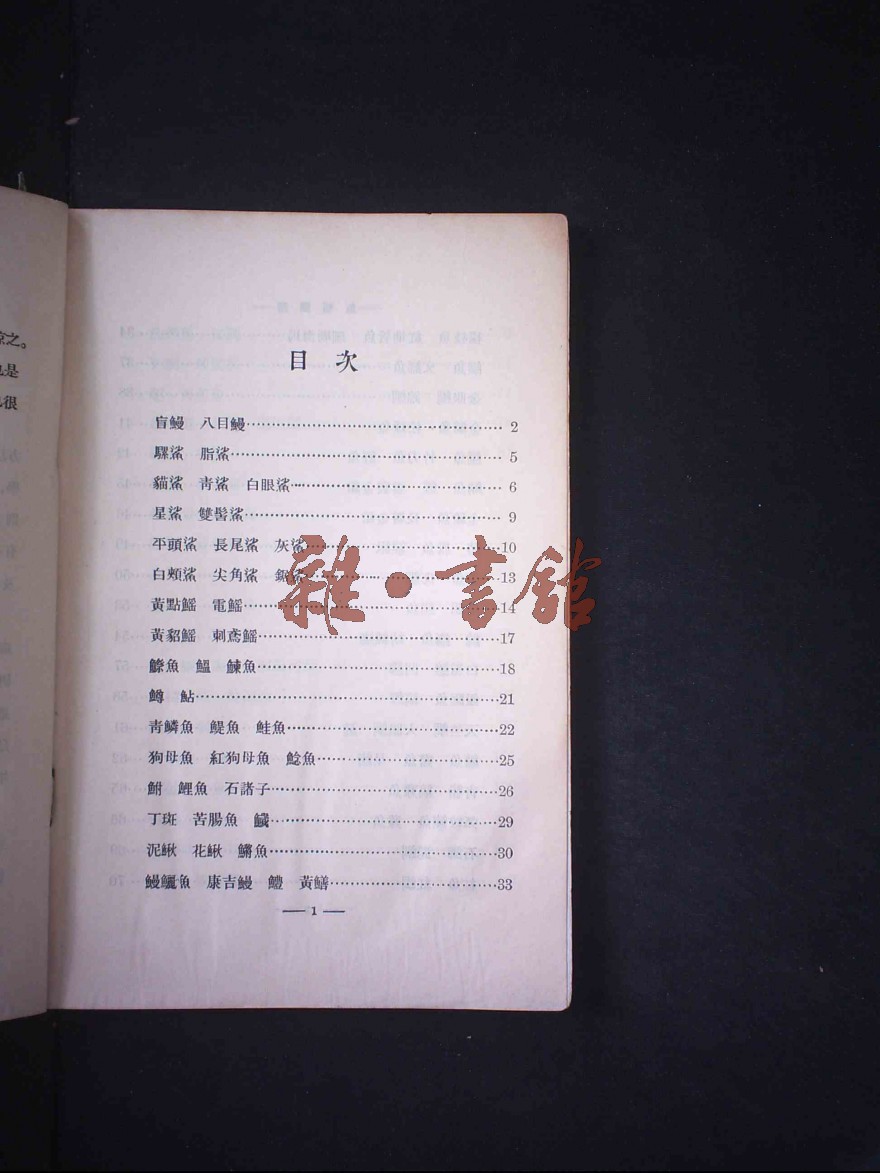 京之。
也是
也很
目次
盲鰻 八目鰻 2
騾鯊 脂鯊 5
貓鯊 靑鯊 白眼鯊 6
星鯊 雙髻鯊 9
平頭鯊 長尾鯊 灰鯊 10
白頰鯊 尖角鯊 鋸鯊 13
黃點鰩 電鰩 14
黃貂鰩 刺鳶鰩 17
鰶魚 鰮 鰊魚 18
鱒 鮎 21
靑鱗魚 鯷魚 鮭魚 22
狗母魚 紅狗母魚 鯰魚 25
鮒 鯉魚 石諸子 26
丁斑 苦腸魚 29
泥鰍 花鰍 鱂魚 30
鰻鱺魚 康吉鰻 鱧 黃鱔 33
— 1 —
雜·書館